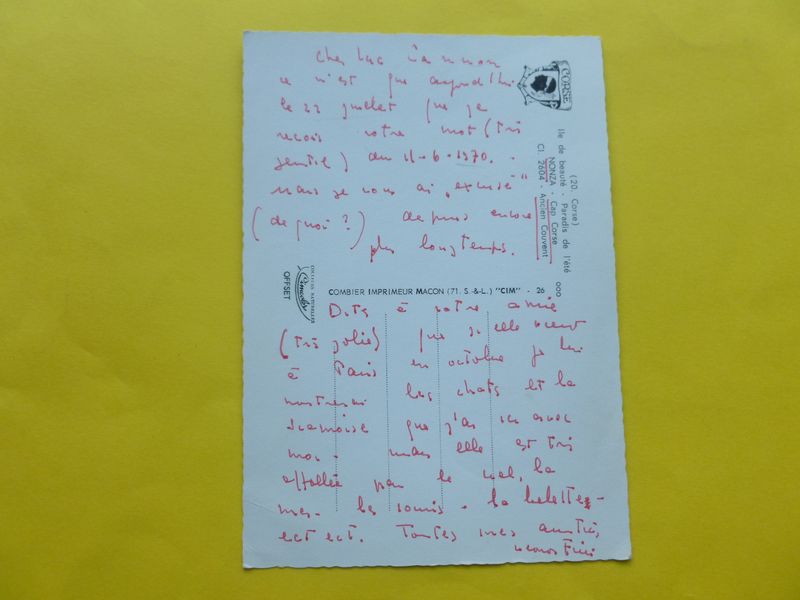 Cher Luc
ce n'est que aujourdhui
le 22 juillet que je
reçois votre mot (très
gentil) du 11-6-1970. -
mais je vous ai "excusé"
(de quoi?) depuis encore
plus longtemps.
CORSE
(20. Corse)
Ile de beauté - Paradis de l'été 000
NONZA - Cap Corse
CI. 2604 - Ancien Couvent
COMBIER IMPRIMEUR MACON (71. S.-&-L.) "CIM" - 26
COULEURS NATURELLES
Cimcolor
OFFSET
Dites à votre amie
(très jolie) que si elle vient
à Paris en octobre je lui
montrerai les chats et la
siamoise que j'ai ici avec
moi. mais elle est très
affolée par le ciel, la
mer. les souris. la belette -
ect ect. Toutes mes amitiés,